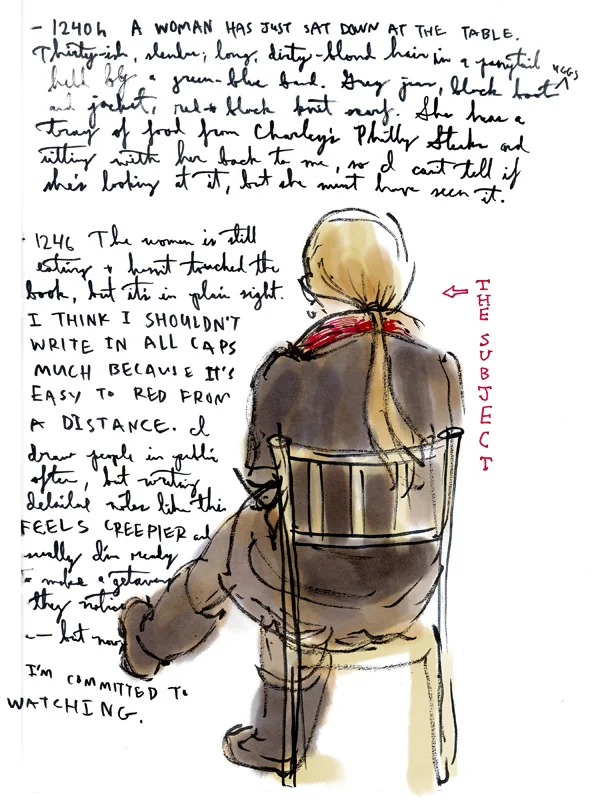 - 1240h A WOMAN HAS JUST SAT DOWN AT THE TABLE.
Thirty-ish, slender, long, dirty-blond hair in a ponytail
held by a green-blue band. Grey jeans, black boots UGGS
and jacket, red & black knit scarf. She has a
tray of food from Charley's Philly Steaks and
sitting with her back to me, so I can't tell if
she's looking at it, but she must have seen it.
1246 The woman is still
eating & hasn't touched the
book, but it's in plain sight.
I THINK I SHOULDN'T
WRITE IN ALL CAPS
MUCH BECAUSE IT'S
EASY TO RED FROM
A DISTANCE. I
draw people in public
often, but writing
detailed notes like this
FEELS CREEPIER and
usually I'm ready
to make a getaway
they notice
-- but now
I'M COMMITTED TO
WATCHING.
THE SUBJECT